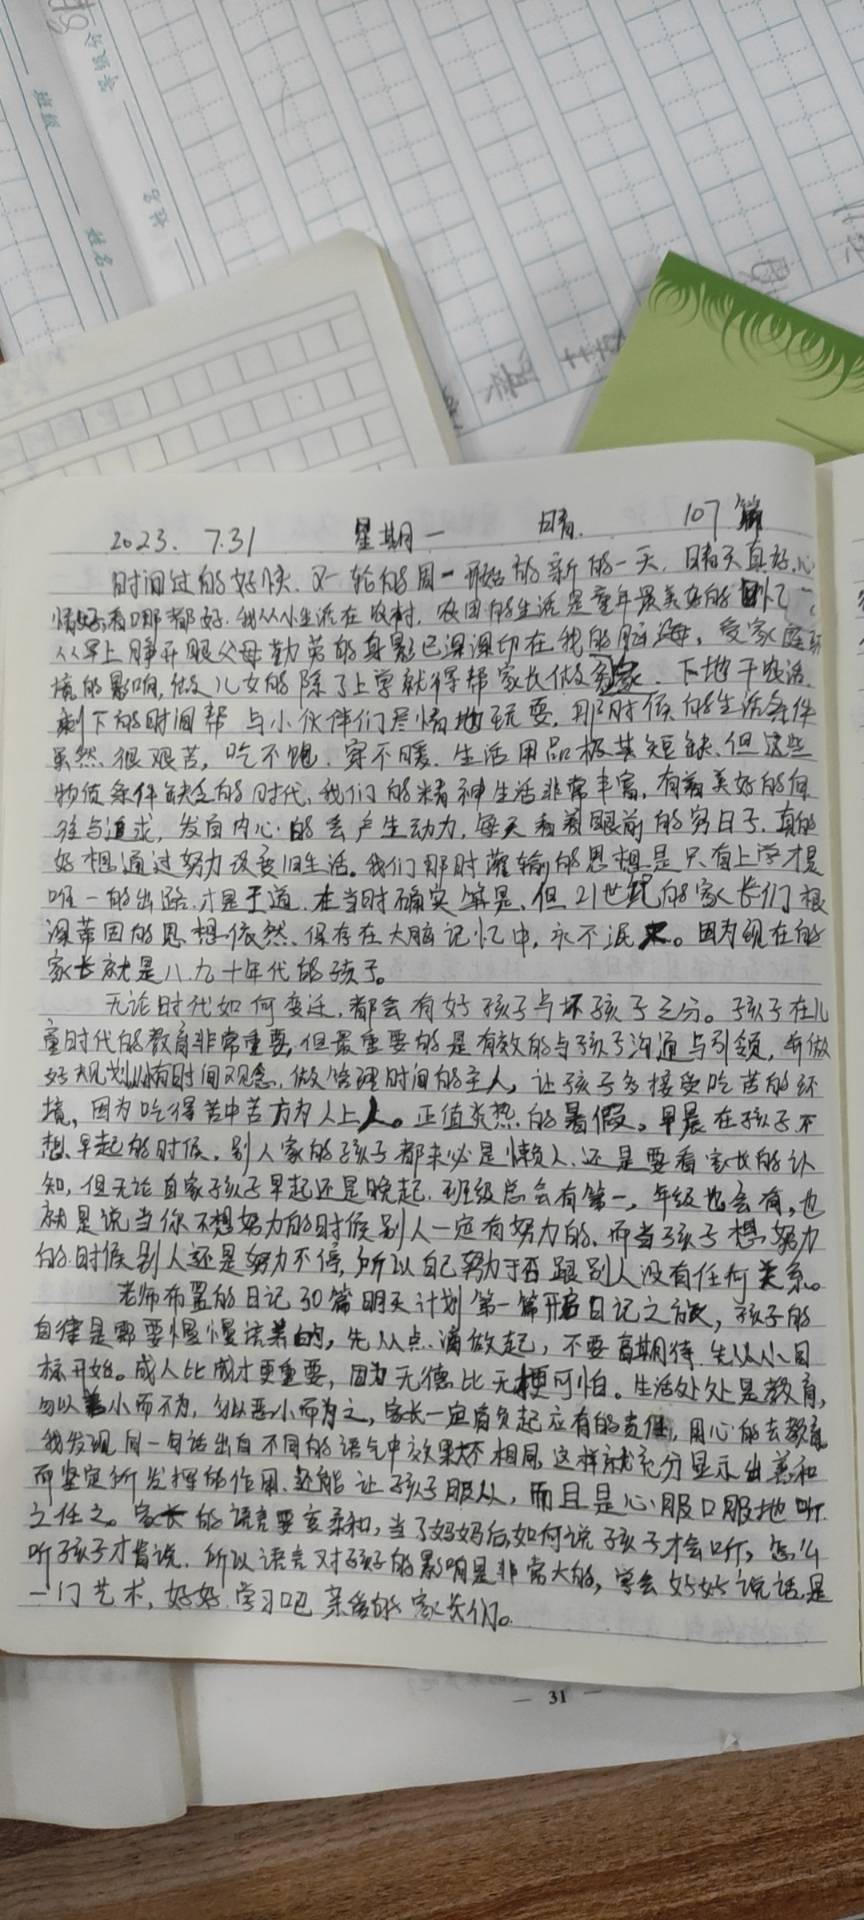 班级
姓名
2023. 7.31 星期一 晴. 107篇
时间过的好快. 又一轮的周一开始的新的一天, 晴天真好, 心
情好, 看哪都好. 我从小生活在农村, 农田的生活是童年最美好的回忆,
从早上睁开眼父母勤劳的身影已深深印在我的脑海, 受家庭环
境的影响, 做儿女的除了上学就得帮家长做家. 下地干农活.
剩下的时间帮 与小伙伴们尽情地玩耍, 那时候的生活条件
虽然很艰苦, 吃不饱. 穿不暖. 生活用品极其短缺. 但这些
物质条件缺乏的时代, 我们的精神生活非常丰富, 有着美好的向
往与追求, 发自内心的去产生动力, 每天看着眼前的穷日子. 真的
好想通过努力改变旧生活。我们那时灌输的思想是只有上学才是
唯一的出路. 才是王道. 在当时确实算是. 但21世纪的家长们根
深蒂固的思想依然保存在大脑记忆中, 永不泯灭。因为现在的
家长就是八.九十年代的孩子。
无论时代如何变迁, 都会有好孩子与坏孩子之分。孩子在儿
童时代的教育非常重要, 但最重要的是有效的与孩子沟通与引领, 并做
好规划, 拥有时间观念, 做管理时间的主人, 让孩子多接受吃苦的环
境, 因为吃得苦中苦方为人上人。正值炎热的暑假, 早晨在孩子不
想早起的时候, 别人家的孩子都未必是懒人. 还是要看家长的认
知, 但无论自家孩子早起还是晚起. 班级总会有第一, 年级也会有, 也
就是说当你不想努力的时候别人一定有努力的, 而当孩子想努力
的时候别人还是努力不停, 所以自己努力于否跟别人没有任何关系。
老师布置的日记30篇明天计划第一篇开启日记之旅, 孩子的
自律是需要慢慢培养的, 先从点滴做起, 不要高期待. 先从小目
标开始。成人比成才更重要, 因为无德比无梗可怕。生活处处是教育,
勿以善小而不为, 勿以恶小而为之, 家长一定肩负起应有的责任, 用心的去教育
我发现同一句话出自不同的语气中效果太不相同. 这样就充分显示出善和
而坚定所发挥的作用. 还能让孩子服从, 而且是心服口服地听
之任之。家长的语言要变柔和, 当了妈妈后, 如何说孩子才会听, 怎么
听孩子才肯说. 所以语言对孩子的影响是非常大的, 学会好好说话是
一门艺术, 好好学习吧亲爱的家长们。
31